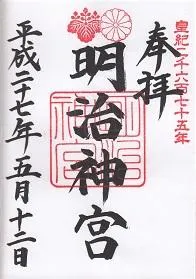 皇紀二千六百七十五年
奉拝
明治神宮
平成二十七年五月十二日
明治神宮